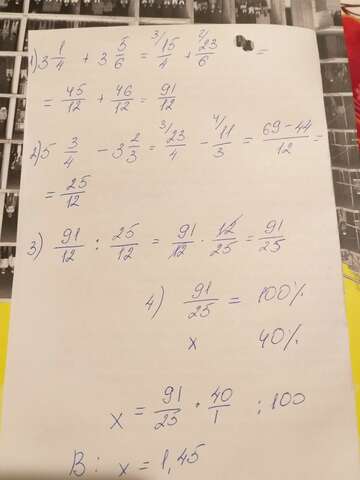 1) 3 1/4 + 3 5/6 = ³⁾15/4 + ²⁾23/6 =
= 45/12 + 46/12 = 91/12
2) 5 3/4 - 3 2/3 = ³⁾23/4 - ⁴⁾11/3 = 69-44/12 =
= 25/12
3) 91/12 : 25/12 = 91/12 · 12/25 = 91/25
4) 91/25 = 100%
x 40%
x = 91/25 · 40/1 : 100
В: x = 1,45